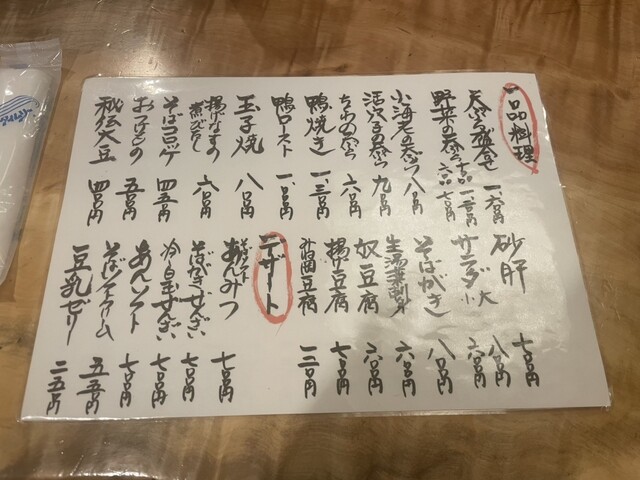 一品料理
天ぷら盛合せ 一、六〇〇円
野菜の天ぷら 十品 一、二〇〇円
六品 七〇〇円
小海老の天ぷら 八〇〇円
活穴子の天ぷら 九〇〇円
ちくわの天ぷら 六〇〇円
鴨焼き 一、三〇〇円
鴨ロースト 一、〇〇〇円
玉子焼 八〇〇円
揚げなすの煮びたし 六〇〇円
そばコロッケ 四五〇円
おつけもの 五〇〇円
秘伝大豆 四〇〇円
砂肝 七〇〇円
サラダ 大 八〇〇円
小 六〇〇円
そばがき 八〇〇円
生湯葉刺身 六〇〇円
奴豆腐 六〇〇円
揚げ豆腐 七〇〇円
豆腐 一三〇〇円
デザート
あんみつ 七〇〇円
そばがきぜんざい 七〇〇円
冷し白玉ぜんざい 七〇〇円
あんソフト 七〇〇円
そばソフトクリーム 五五〇円
豆乳ゼリー 二五〇円